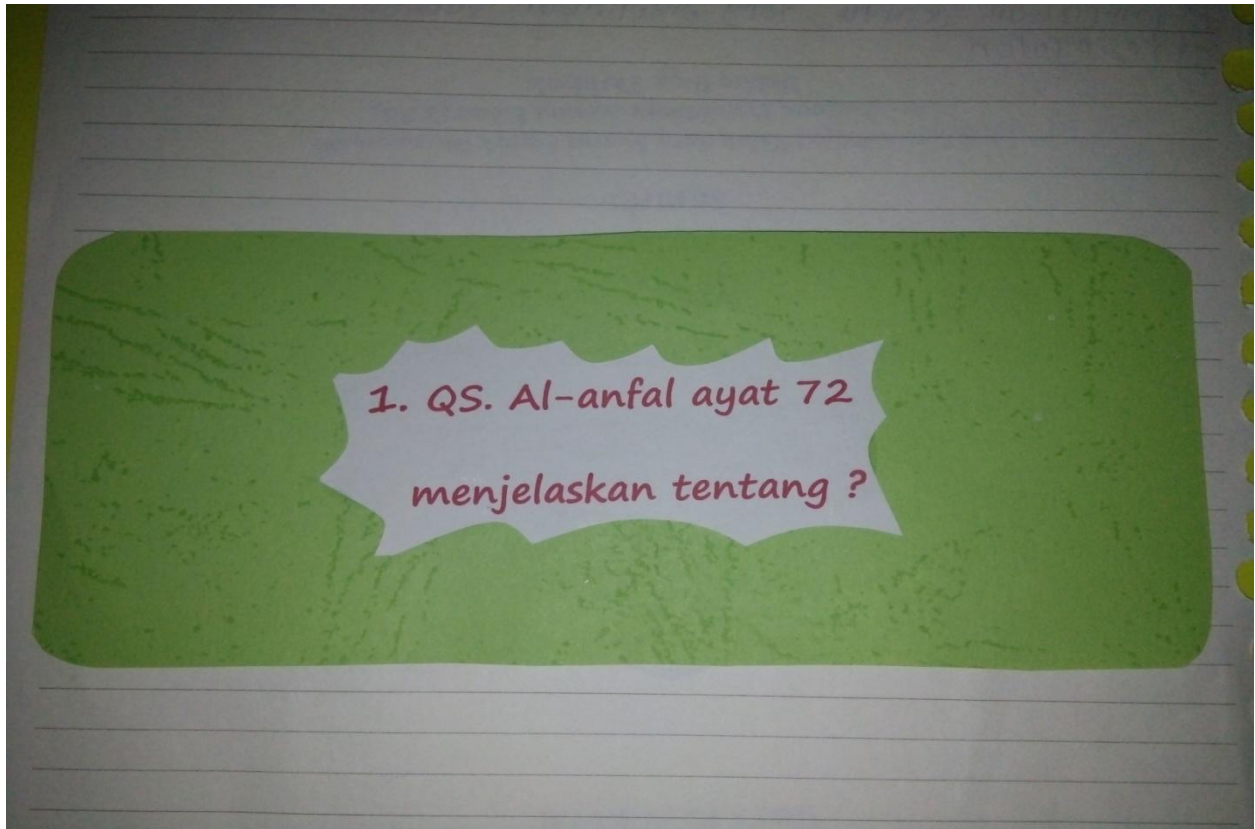 1. QS. Al-anfal ayat 72
menjelaskan tentang ?